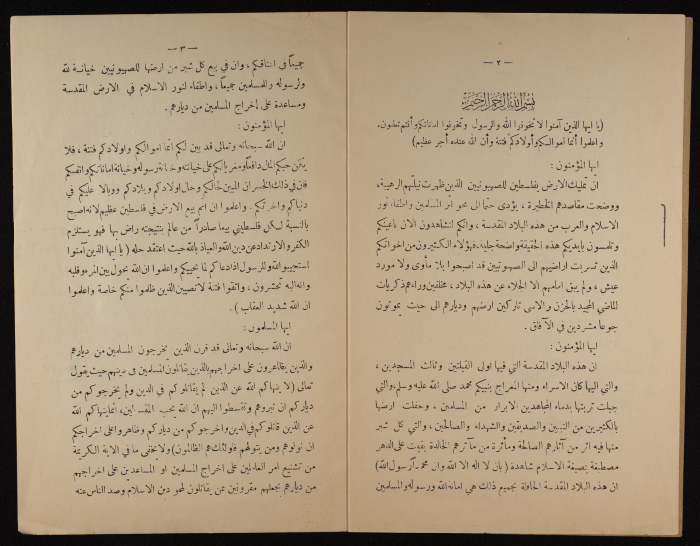 — ٢ —
بسم الله الرحمن الرحيم
(يا ايها الذين آمنوا لا تخونوا الله والرسول وتخونوا اماناتكم وأنتم تعلمون.
واعلموا أنما اموالكم وأولادكم فتنة وأن الله عنده أجر عظيم)
ايها المؤمنون :
انّ تمليك الارض بفلسطين للصهيونيين الذين ظهرت نياتهم الرهيبة،
ووضحت مقاصدهم الخطيرة ، يؤدى حتماً الى محو اثر المسلمين واطفاء نور
الاسلام والعرب من هذه البلاد المقدسة ، وانكم لتشاهدون الان باعينكم
وتلمسون بايديكم هذه الحقيقة واضحة جلية، فهؤلاء الكثيرون من اخوانكم
الذين تسربت اراضيهم الى الصهيونيين قد اصبحوا بلا مأوى ولا مورد
عيش ، ولم يبق امامهم الا الجلاء عن هذه البلاد ، مخلفين وراءهم ذكريات
الماضي المجيد بالحزن والاسى تاركين ارضهم وديارهم الى حيث يموتون
جوعاً مشردين في الآفاق .
ايها المؤمنون :
ان هذه البلاد المقدسة التي فيها اولى القبلتين وثالث المسجدين ،
والتي اليها كان الاسراء ومنها المعراج بنبيكم محمد صلى الله عليه وسلم، والتي
جبلت تربتها بدماء المجاهدين الابرار من المسلمين ، وحفلت ارضها
بالكثيرين من النبيين والصديقين والشهداء والصالحين ، والتي كل شبر
منها فيه اثر من آثارهم الصالحة ومأثرة من مآثرهم الخالدة بقيت على الدهر
مصطبغة بصبغة الاسلام شاهدة ( بان لا اله الا الله وان محمداً رسول الله)
ان هذه البلاد المقدسة الحافلة بجميع ذلك هي امانة الله ورسوله والمسلمين
— ٣ —
جميعاً في اعناقكم ، وان في بيع كل شبر من ارضها للصهيونيين خيانة لله
ولرسوله وللمسلمين جميعاً ، واطفاء لنور الاسلام في الارض المقدسة
ومساعدة على اخراج المسلمين من ديارهم .
ايها المؤمنون :
ان الله سبحانه وتعالى قد بين لكم انما اموالكم واولادكم فتنة ، فلا
يكن حبكم المال دافعاً ومغرياً لكم على خيانته وخيانة رسوله وخيانة اماناتكم وانفسكم
فان في ذلك الخسران المبين لكم وحال اولادكم وبلادكم ووبالا عليكم في
دنياكم واخرتكم . واعلموا ان اثم بيع الارض في فلسطين عظيم لانه اصبح
بالنسبة لكل فلسطيني بيعا صادراً من عالم بنتيجته راض بها فهو يستلزم
الكفر والارتداد عن دين الله والعياذ بالله حيث اعتقد حله (يا ايها الذين آمنوا
استجيبوا لله وللرسول اذا دعاكم لما يحييكم واعلموا ان الله يحول بين المرء وقلبه
وانه اليه تحشرون ، واتقوا فتنة لا تصيبن الذين ظلموا منكم خاصة واعلموا
ان الله شديد العقاب ) .
ايها المسلمون :
ان الله سبحانه وتعالى قد قرن الذين يخرجون المسلمين من ديارهم
والذين يظاهرون على اخراجهم بالذين يقاتلون المسلمين في دينهم حيث يقول
تعالى (لا ينهاكم الله عن الذين لم يقاتلوكم في الدين ولم يخرجوكم من
دياركم ان تبروهم وتقسطوا اليهم ان الله يحب المقسطين، انما ينهاكم الله
عن الذين قاتلوكم في الدين واخرجوكم من دياركم وظاهروا على اخراجكم
ان تولوهم ومن يتولهم فاولئك هم الظالمون) ولا يخفى ما في الاية الكريمة
من تشنيع امر العاملين على اخراج المسلمين او المساعدين على اخراجهم
من ديارهم بجعلهم مقرونين ممن يقاتلون لمحو دين الاسلام وصد الناس عنه